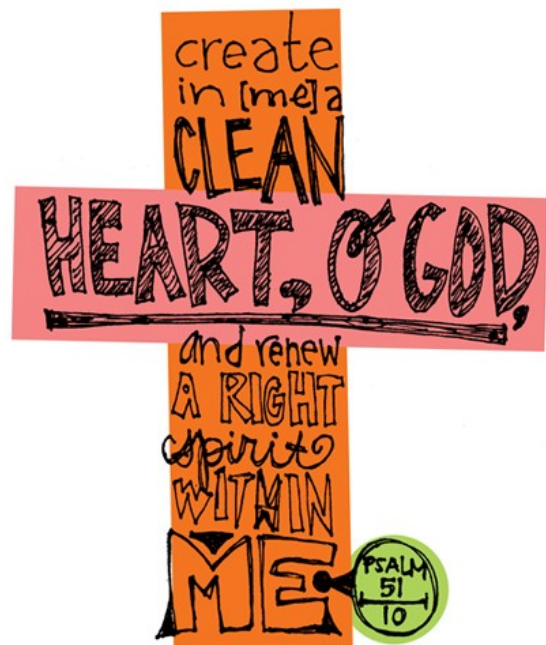 create
in [me] a
CLEAN
HEART, O GOD,
and renew
A RIGHT
spirit
WITHIN
ME
PSALM
51
10